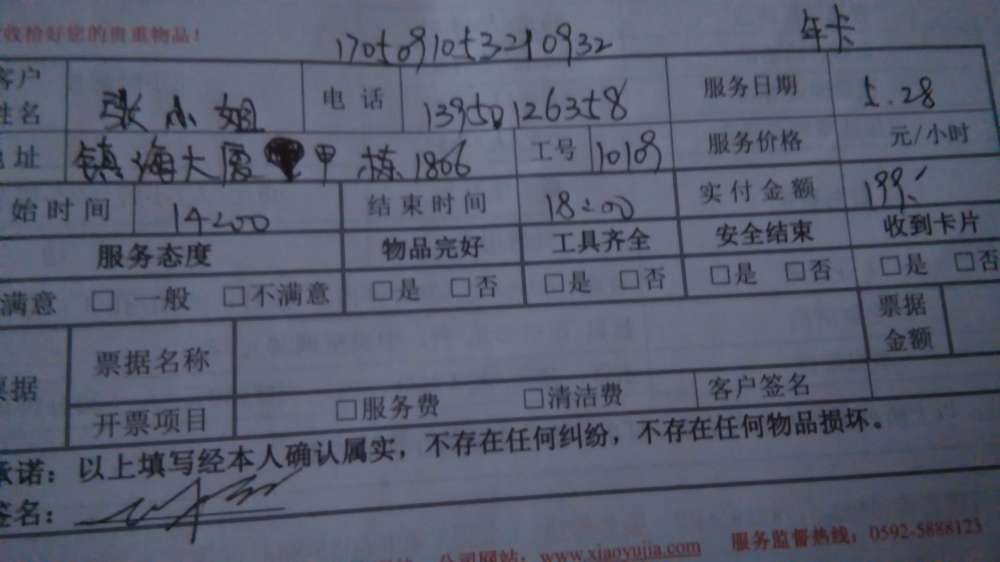 收检好您的贵重物品!
1705091053210932 年卡
客户姓名 张小姐 电话 13950126358 服务日期 5.28
地址 镇海大厦 甲栋1866 工号 10109 服务价格 元/小时
始时间 14:00 结束时间 18:00 实付金额 199.
服务态度 物品完好 工具齐全 安全结束 收到卡片
满意 □ 一般 □不满意 □是 □否 □是 □否 □是 □否 □是 □否
票据 票据名称 票据金额
开票项目 □服务费 □清洁费 客户签名
承诺：以上填写经本人确认属实，不存在任何纠纷，不存在任何物品损坏。
签名：
公司网站：www.xiaoyujia.com 服务监督热线：0592-5888123